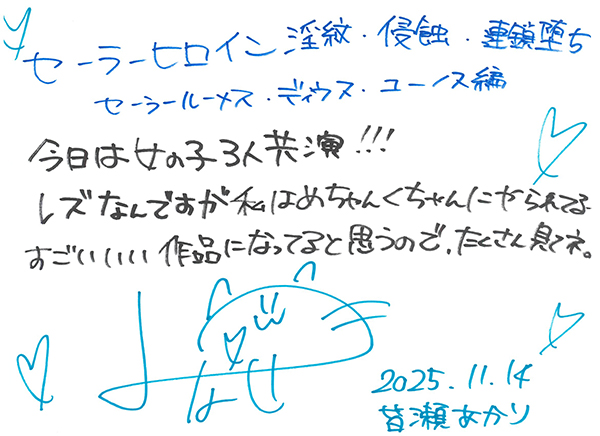 セーラーヒロイン淫紋・侵蝕・連鎖堕ち
セーラールーメス・ディウス・ユーノス編
今日は女の子3人共演!!!
レズなんですが私はめちゃんくちゃんにやられてる
すごいいいい作品になってると思うので、たくさん見てネ。
みなせ
2025.11.14
皆瀬あかり